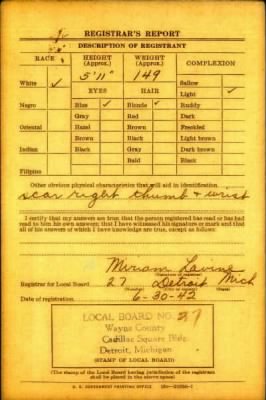 REGISTRAR'S REPORT
DESCRIPTION OF REGISTRANT
RACE HEIGHT (Approx.) WEIGHT (Approx.) COMPLEXION
5'11" 149
White ✓ Sallow
EYES HAIR Light ✓
Negro Blue ✓ Blonde ✓ Ruddy
Gray Red Dark
Oriental Hazel Brown Freckled
Brown Black Light brown
Indian Black Gray Dark brown
Bald Black
Filipino
Other obvious physical characteristics that will aid in identification
scar right thumb + wrist
I certify that my answers are true; that the person registered has read or has had
read to him his own answers; that I have witnessed his signature or mark and that
all of his answers of which I have knowledge are true, except as follows:
Miriam Lavine
(Signature of registrar)
Registrar for Local Board 27 Detroit Mich
(Number) (City or county) (State)
Date of registration 6-30-42
LOCAL BOARD NO. 27
Wayne County
Cadillac Square Bldg.
Detroit, Michigan
(STAMP OF LOCAL BOARD)
(The stamp of the Local Board having jurisdiction of the registrant
shall be placed in the above space)
U. S. GOVERNMENT PRINTING OFFICE